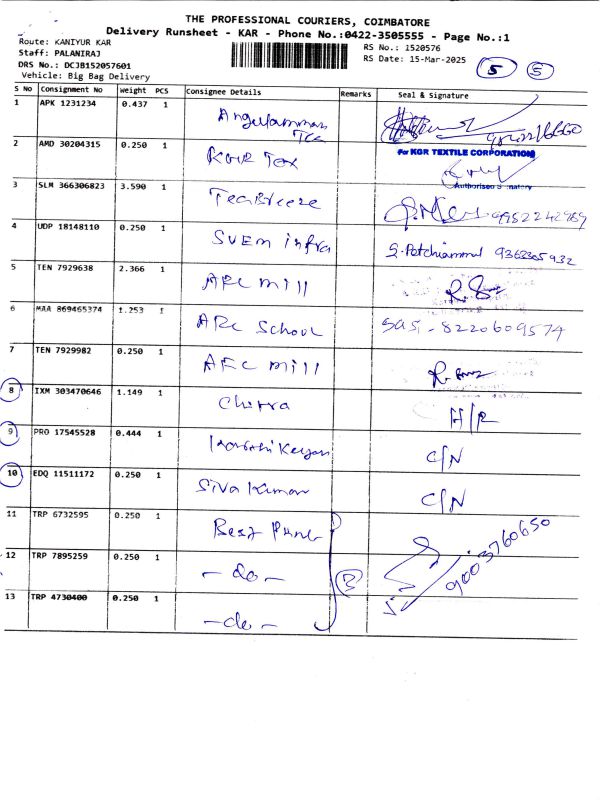 THE PROFESSIONAL COURIERS, COIMBATORE
Delivery Runsheet - KAR - Phone No.:0422-3505555 - Page No.:1
Route: KANIYUR KAR
RS No.: 1520576
Staff: PALANIRAJ
RS Date: 15-Mar-2025
DRS No.: DCJB152057601
Vehicle: Big Bag Delivery
5 5
S No Consignment No Weight PCS Consignee Details Remarks Seal & Signature
1 APK 1231234 0.437 1
2 AMD 30204315 0.250 1 KGR Tex For KGR TEXTILE CORPORATION
Authorised Signatory
3 SLM 366306823 3.590 1 TeaBreeze 9952242989
4 UDP 18148110 0.250 1 SVEM infra S.Petchiammal 9363305932
5 TEN 7929638 2.366 1 ARC mill
6 MAA 869465374 1.253 1 ARC School Sasi - 8220609574
7 TEN 7929982 0.250 1 ARC mill
8 IXM 303470646 1.149 1 Chitra H/R
9 PRO 17545528 0.444 1 C/N
10 EDQ 11511172 0.250 1 Siva Kumar C/N
11 TRP 6732595 0.250 1 Best
12 TRP 7895259 0.250 1 - do - 3 9003760650
13 TRP 4730400 0.250 1 - do -